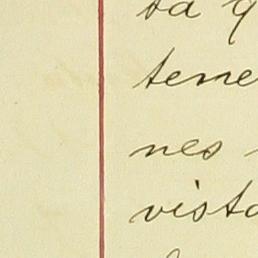 ta q
teme
nes
vista